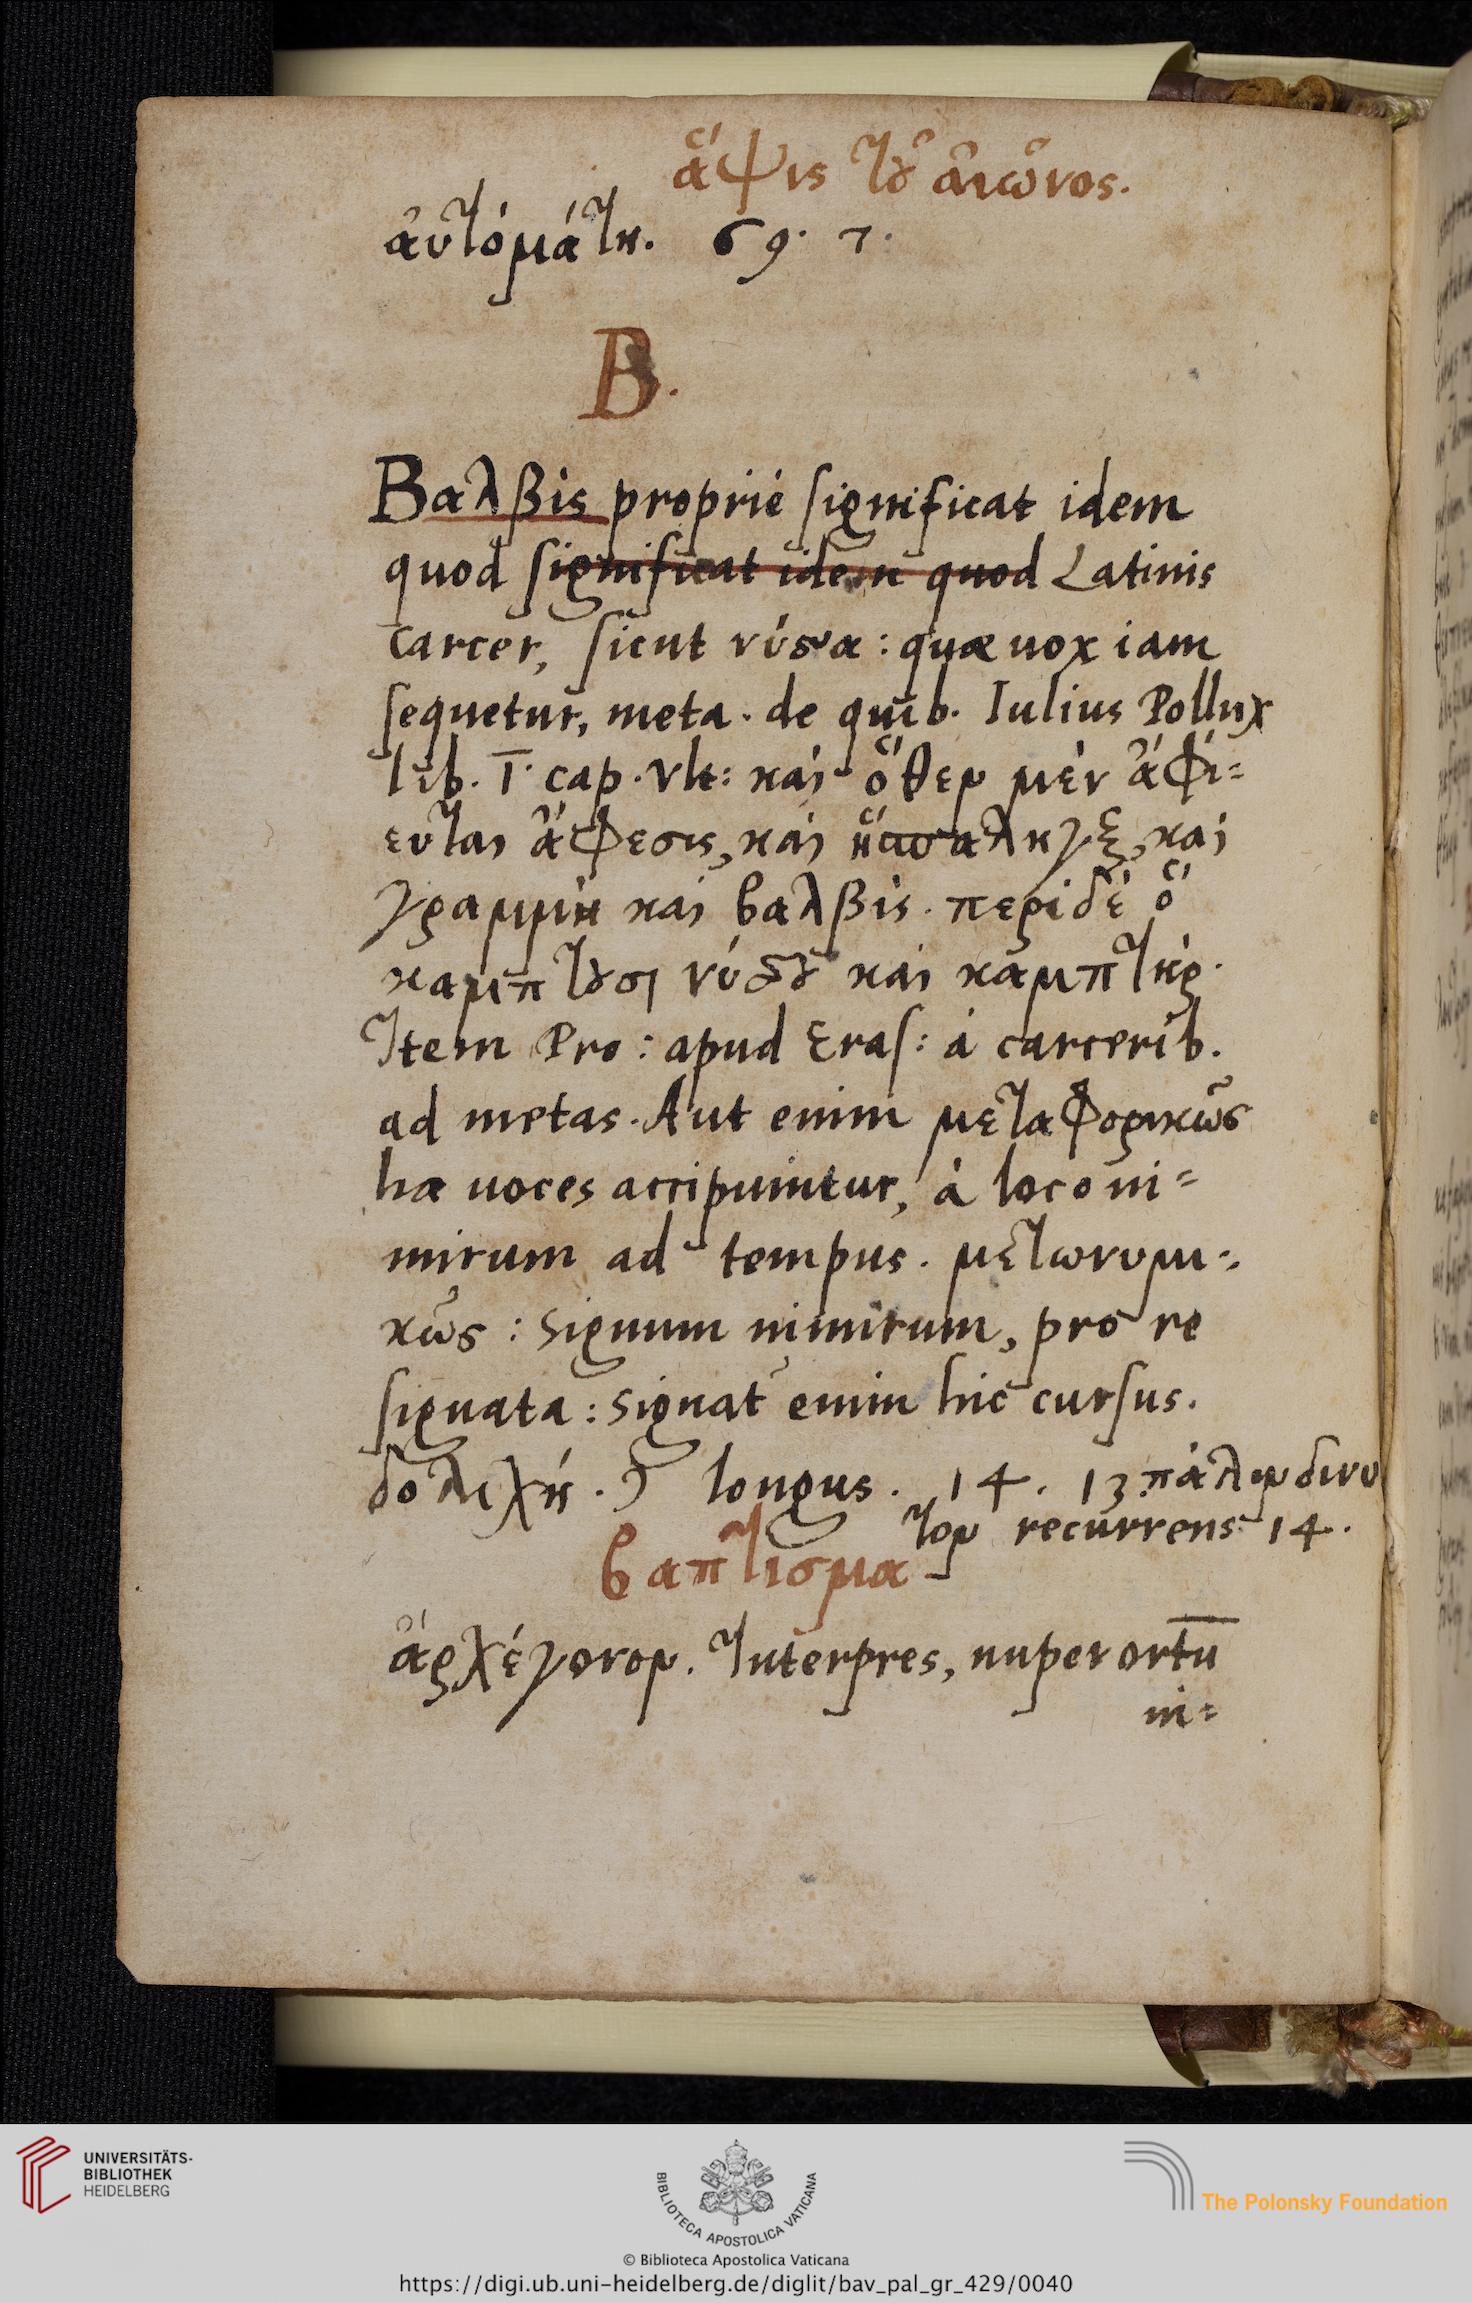 ἅψις τȣ͂ αἰῶνος.
αὐτόμάτη. 69. 7.
B.
Βαλβὶς proprié significat idem
quod significat idem quod Latinis
carcer, sicut νύσσα: quæ uox iam
sequetur, meta. de quib. Iulius Pollux
lib. I. cap. vlt: καὶ ὅθεν μὲν ἀφί=
ενται ἄφεσις, καὶ ὕσπληγξ, καὶ
γραμμὴ καὶ βαλβὶς. περὶ δὲ ὃ
καμπτȣσι νύσσȣ καὶ καμπτὴρ.
Item Pro: apud Eras: á carcerib.
ad metas. Aut enim μεταφορικῶς
hæ uoces accipiuntur, á loco ni=
mirum ad tempus. μετωνυμι=
κῶς: signum nimirum, pro re
signata: signat enim hic cursus.
δολιχή. longus. 14. 13. πάλιν δινυ
τον recurrens 14.
βαπτισμα
ἀρχέγονον. Interpres, nuper ortū
ni=
UNIVERSITÄTS-
BIBLIOTHEK
HEIDELBERG
BIBLIOTECA APOSTOLICA VATICANA
© Biblioteca Apostolica Vaticana
The Polonsky Foundation
https://digi.ub.uni-heidelberg.de/diglit/bav_pal_gr_429/0040